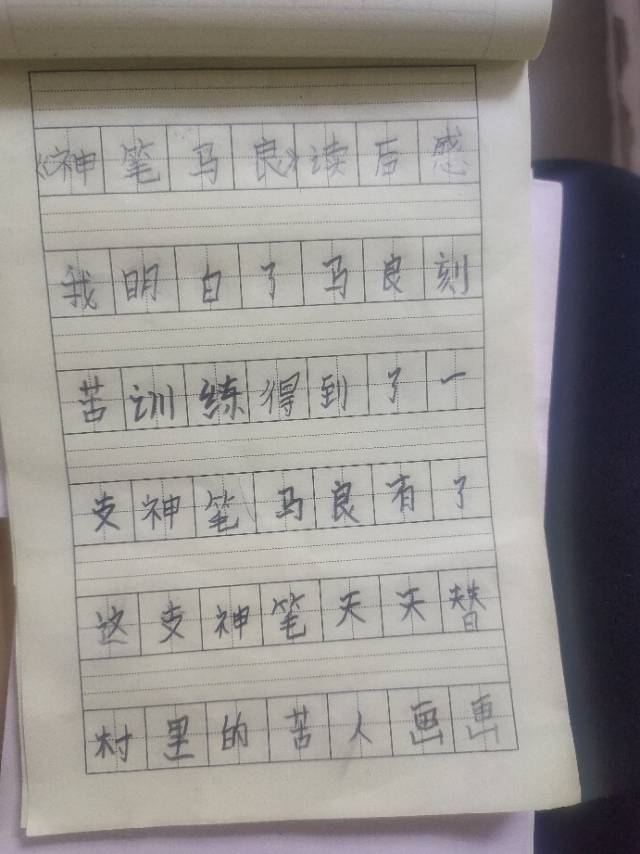 《神笔马良》读后感
我明白了马良刻
苦训练得到了一
支神笔马良有了
这支神笔天天替
村里的苦人画画